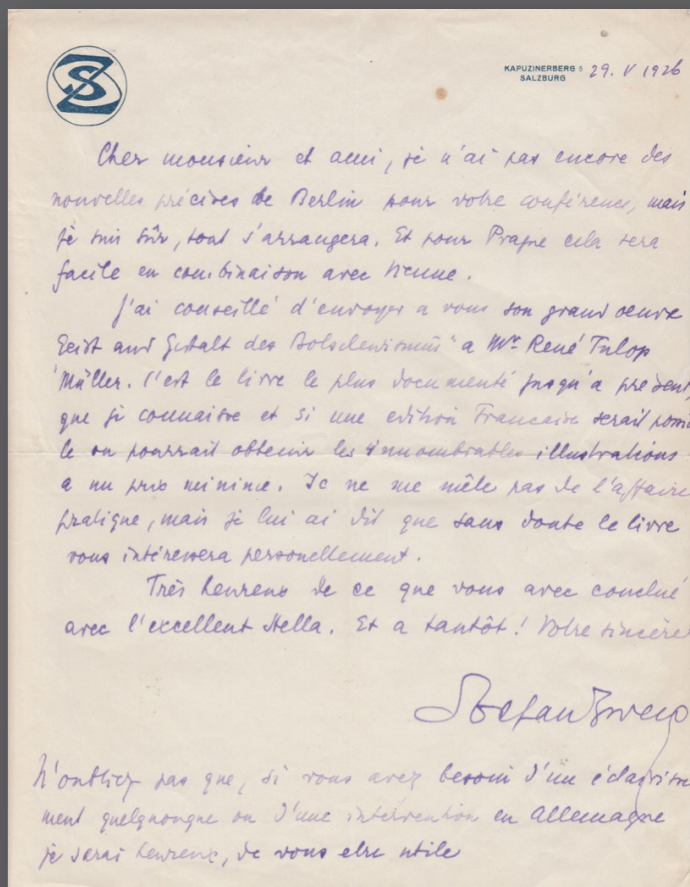 SZ
KAPUZINERBERG 5
SALZBURG
29. V 1926
Cher monsieur et ami, je n'ai pas encore des
nouvelles précises de Berlin pour votre conférence, mais
je suis sûr, tout s'arrangera. Et pour Prague cela sera
facile en combinaison avec Vienne.
J'ai conseillé d'envoyer a vous son grand oeuvre
Geist und Gestalt des Bolschewismus" a Mr René Fülop
Müller. C'est le livre le plus documenté jusqu'a présent,
que je connaisse et si une edition Francaise serait possi
le on pourrait obtenir les innombrables illustrations
a un prix minime. Je ne me mêle pas de l'affaire
pratique, mais je lui ai dit que sans doute le livre
vous intéressera personellement.
Très heureux de ce que vous avec conclué
avec l'excellent Hella. Et a tantôt! Votre sincère
Stefan Zweig
N'oubliez pas que, si vous avez besoin d'un éclaircisse
ment quelquonque ou d'une intervention en Allemagne
je serai heureux, de vous etre utile